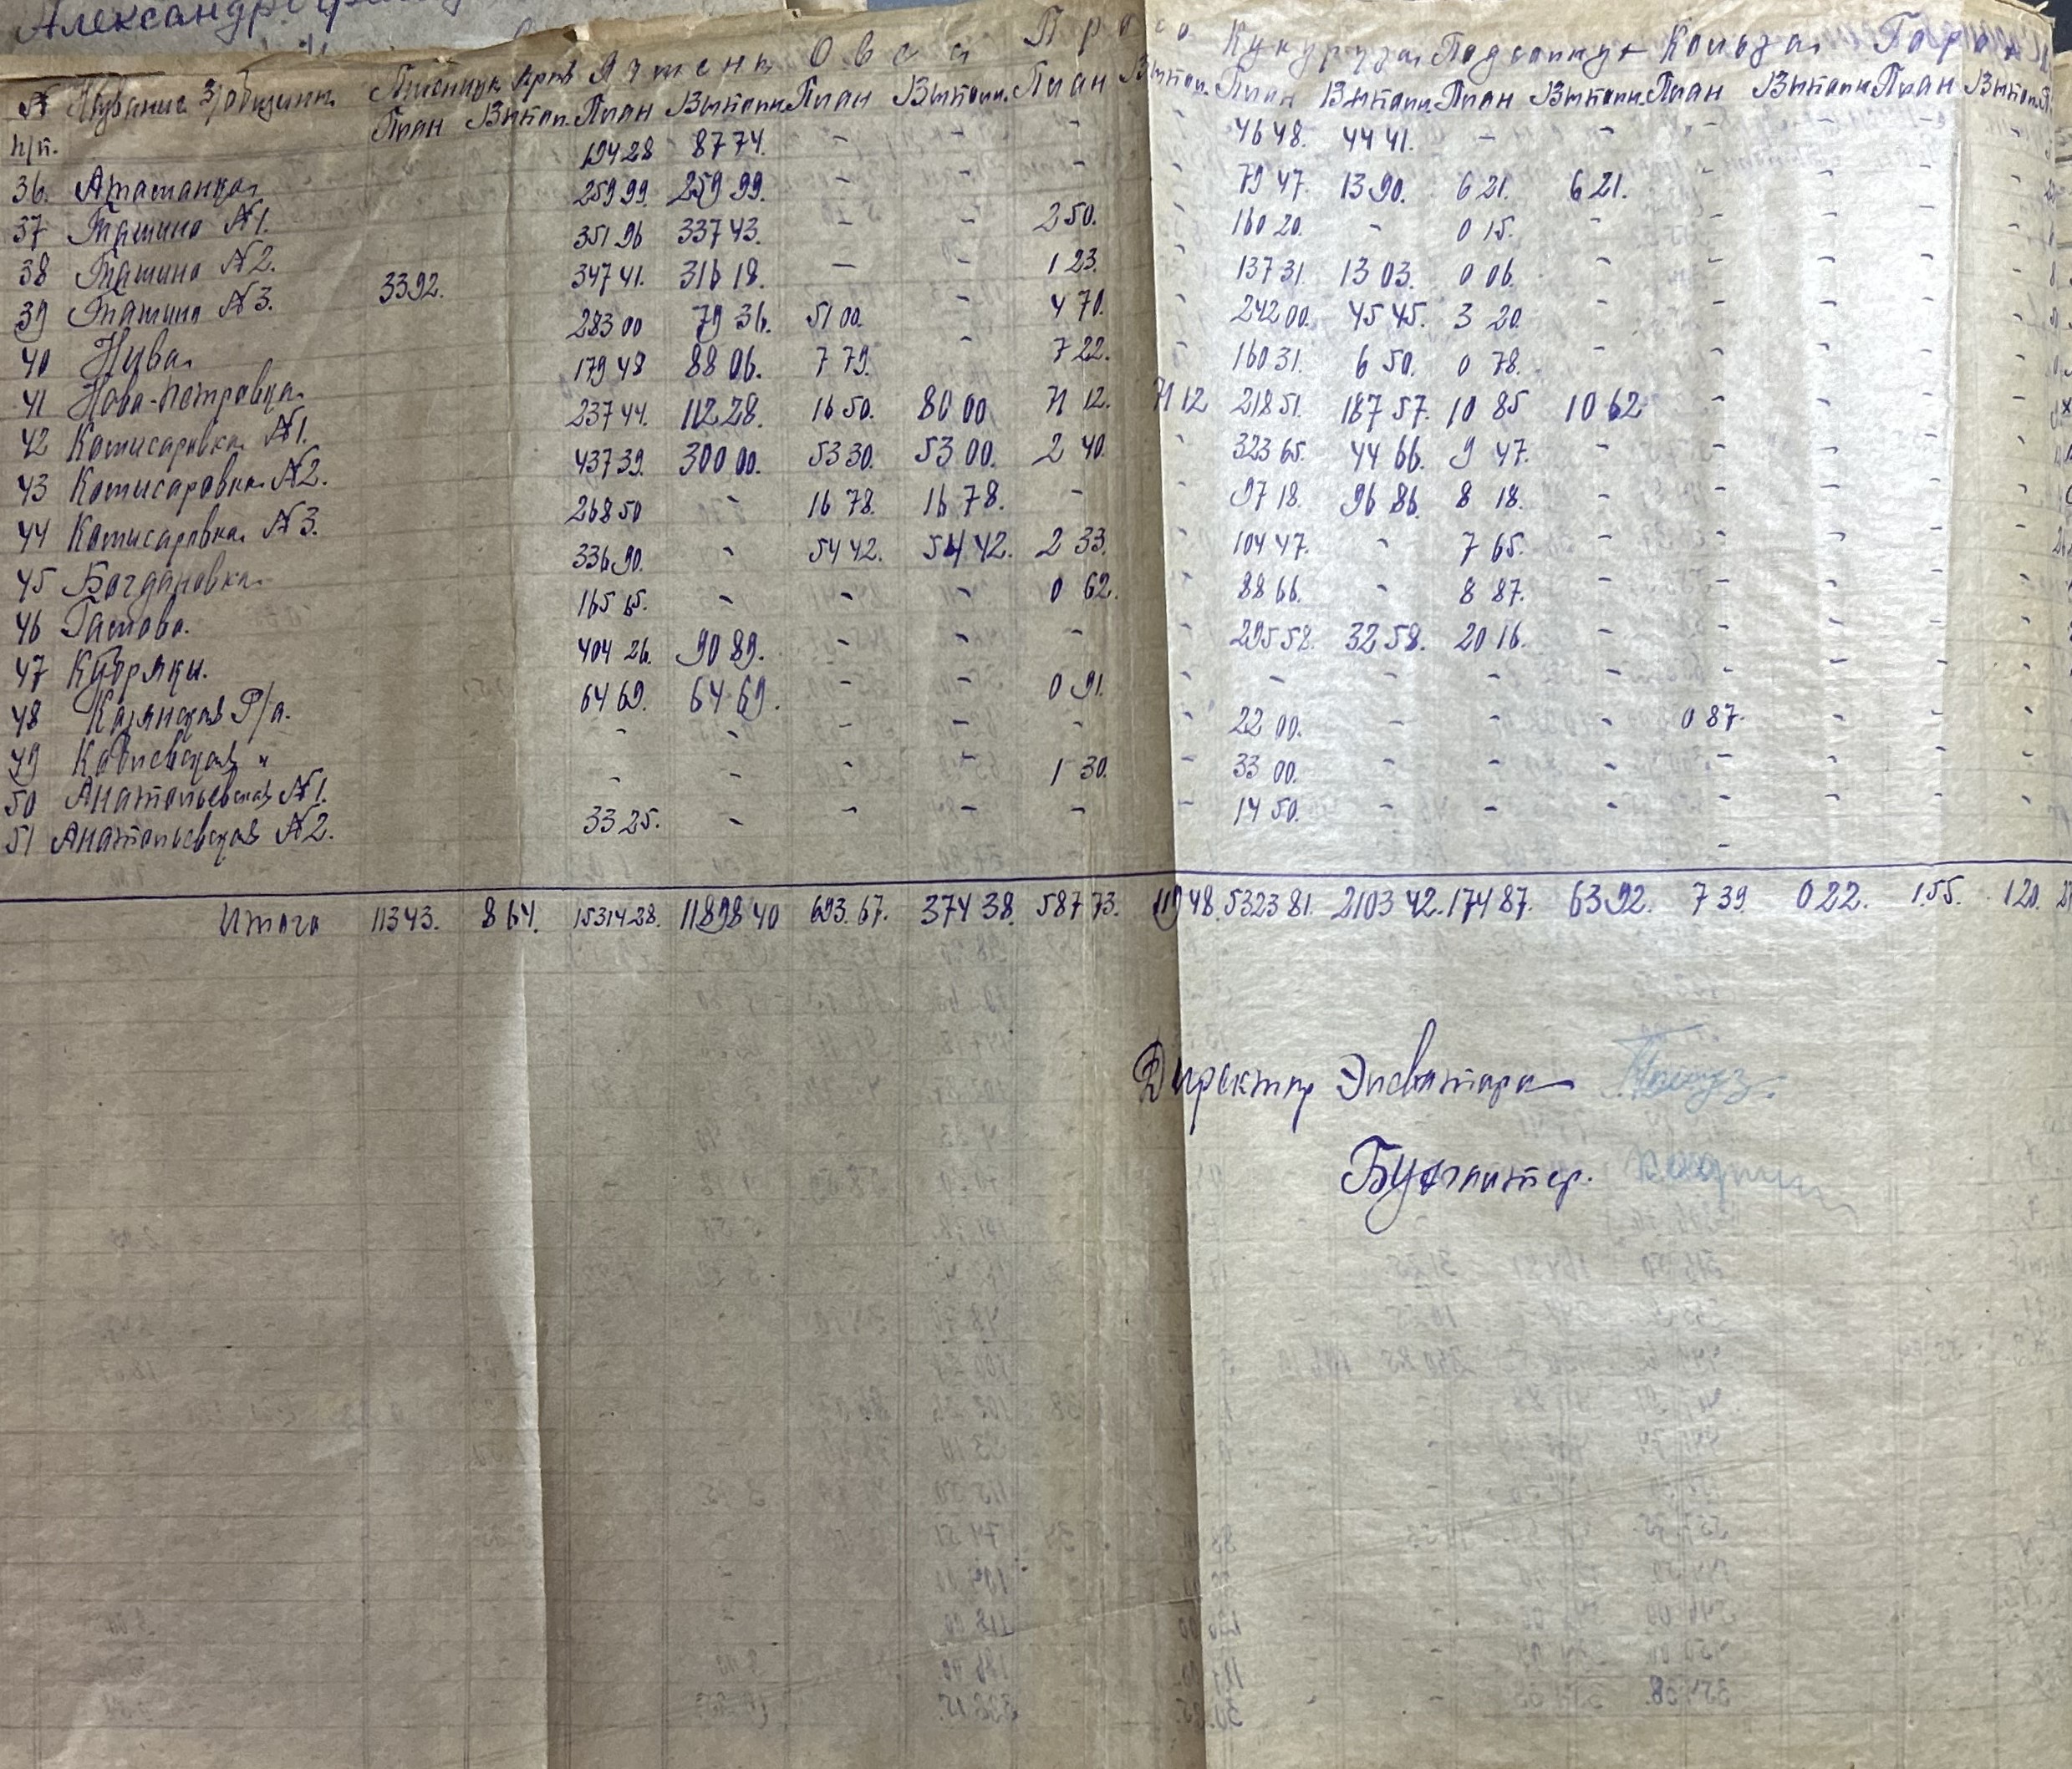 Александр
Пшеница яров Ячмень Овса Просо Кукуруза Подсолнух Кользы Горох
№ Название з/общины План Выполн. План Выполн. План Выполн. План Выполн. План Выполн. План Выполн. План Выполн. План Выполн.
п/п.
36. Атаманка 194 28 87 74. - - - - 46 48. 44 41. - - - - - -
37 Ташино №1. 259 99. 259 99. - - - - 79 47. 13 90. 6 21. 6 21. - - - -
38 Ташино №2. 351 96 337 43. - - 2 50. - 160 20. - 0 15. - - - - -
39 Ташино №3. 33 92. 347 41. 316 18. - - 1 23. - 137 31. 13 03. 0 06. - - - - -
40 Нива. 283 00 79 36. 51 00. - 4 70. - 242 00. 45 45. 3 20. - - - - -
41 Ново-Петровка. 179 48 88 06. 7 79. - 7 22. - 160 31. 6 50. 0 78. - - - - -
42 Комисаровка №1. 237 44. 112 28. 16 50. 80 00 71 12. 71 12 218 51. 187 57. 10 85 10 62 - - - -
43 Комисаровка №2. 437 39. 300 00. 53 30. 53 00. 2 40. - 323 65. 44 66. 9 47. - - - - -
44 Комисаровка №3. 268 50 - 16 78. 16 78. - - 97 18. 96 86. 8 18. - - - - -
45 Богдановка. 336 90. - 54 42. 54 42. 2 33. - 104 47. - 7 65. - - - - -
46 Гамова. 165 65. - - - 0 62. - 88 66. - 8 87. - - - - -
47 Кубряки. 404 26. 90 89. - - - - 295 58. 32 58. 20 16. - - - - -
48 Р/а. 64 69. 64 69. - - 0 91. - - - - - - - - -
49 " - - - - - - 22 00. - - - 0 87. - - -
50 Анатольевская №1. - - - - 1 30. - 33 00. - - - - - - -
51 Анатольевская №2. 33 25. - - - - - 14 50. - - - - - - -
Итого 113 43. 8 64. 15314 28. 11898 40 693. 67. 374 38. 587 73. 119 48. 5323 81. 2103 42. 174 87. 63 92. 7 39 0 22. 1.55. 1.20.
Директор Элеватора
Бухгалтер.